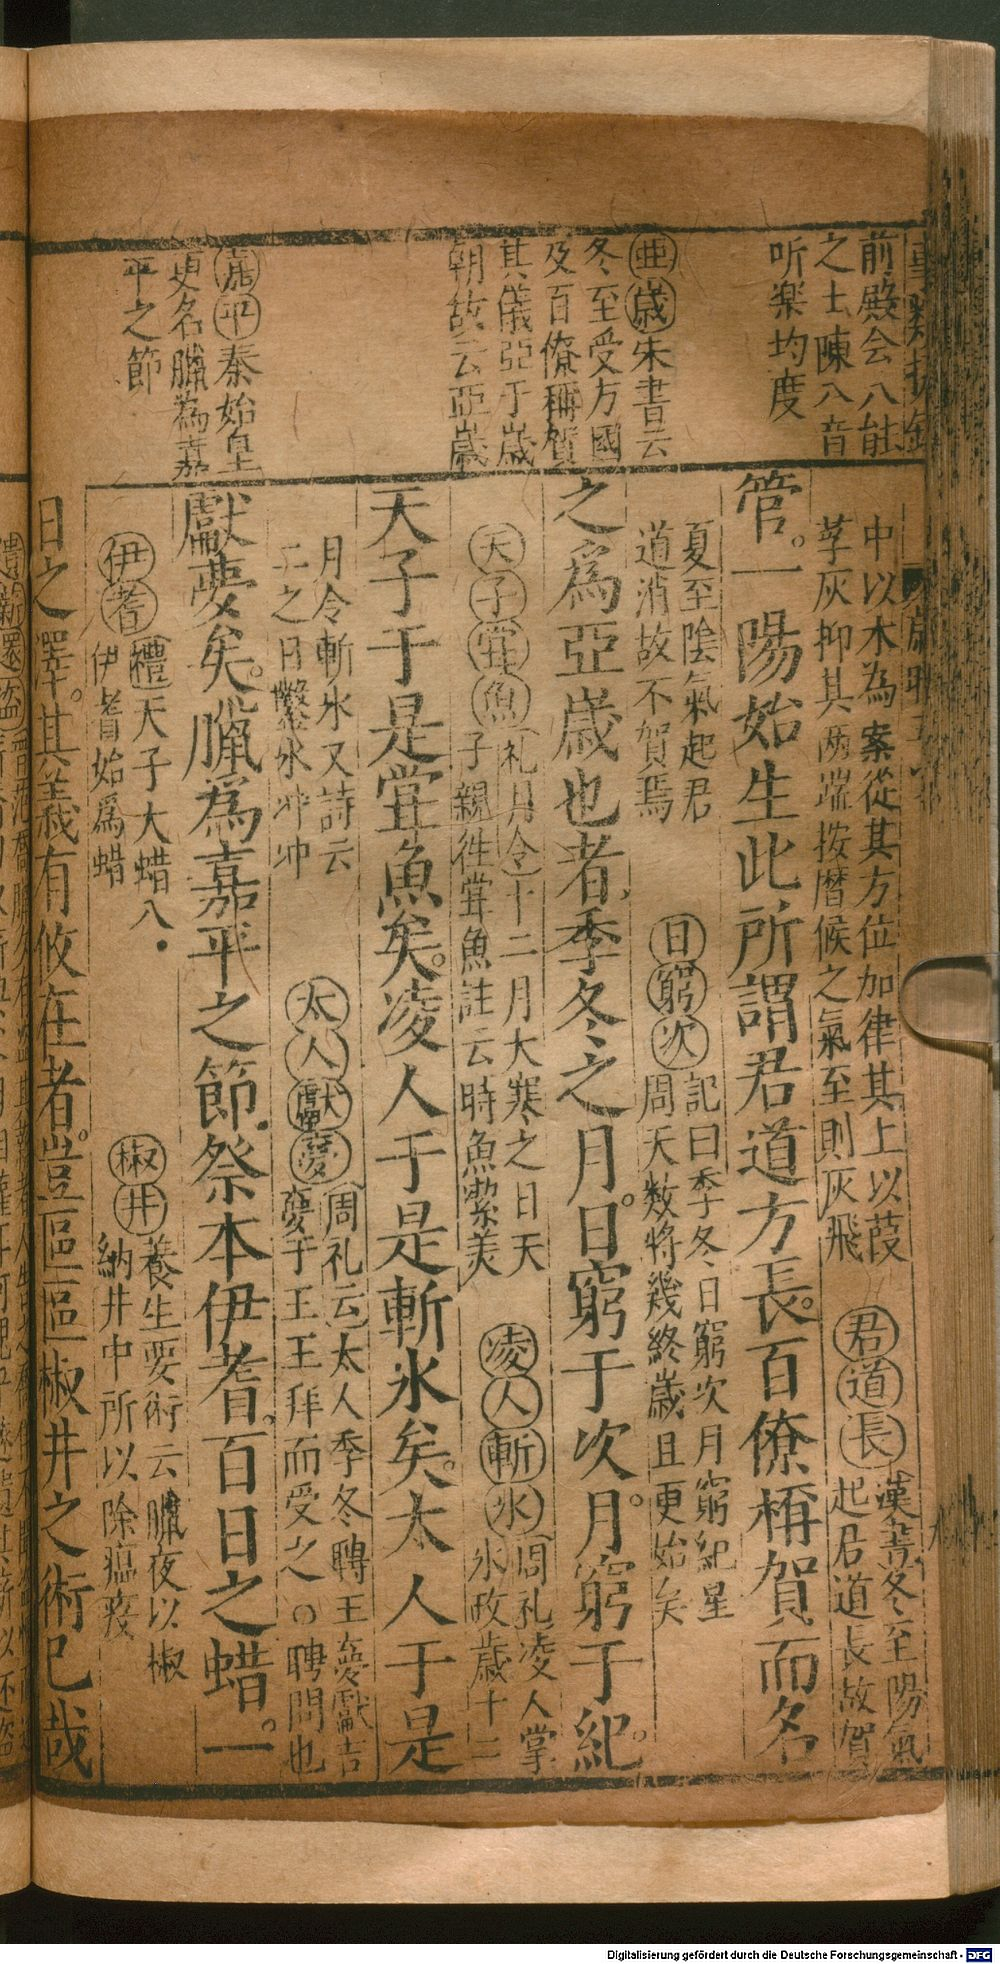 前殿会八能
之士陳八音
听楽均度
亜歳宋書云
冬至受方國
及百僚稱賀
其儀亞于歳
朝故云亞歳
嘉平秦始皇
更名臘為嘉
平之節
中以木為案從其方位加律其上以葭
莩灰抑其兩端按暦候之氣至則灰飛
君道長漢書冬至陽氣
起君道長故賀
管。一陽始生此所謂君道方長。百僚稱賀而名
夏至陰氣起君
道消故不賀焉
日窮次記曰季冬日窮次月窮紀星
周天数將幾終歳且更始矣
之爲亞歳也者、季冬之月。日窮于次。月窮于紀。
天子甞魚礼月令十二月大寒之日天
子親徃甞魚註云時魚潔美
凌人斬氷周礼凌人掌
氷政歳十二
天子于是甞魚矣。凌人于是斬氷矣。太人于是
月令斬氷又詩云
二之日鑿氷冲冲
太人獻夢周礼云太人季冬聘王夢獻吉
夢于王王拜而受之○聘問也
獻夢矣。臘爲嘉平之節。祭本伊耆。百日之蜡。一
伊耆禮天子大蜡八・
伊耆始爲蜡
椒井養生要術云臘夜以椒
納井中所以除瘟疫
日之澤。其義有攸在者。豈區區椒井之術已哉
Digitalisierung gefördert durch die Deutsche Forschungsgemeinschaft - DFG